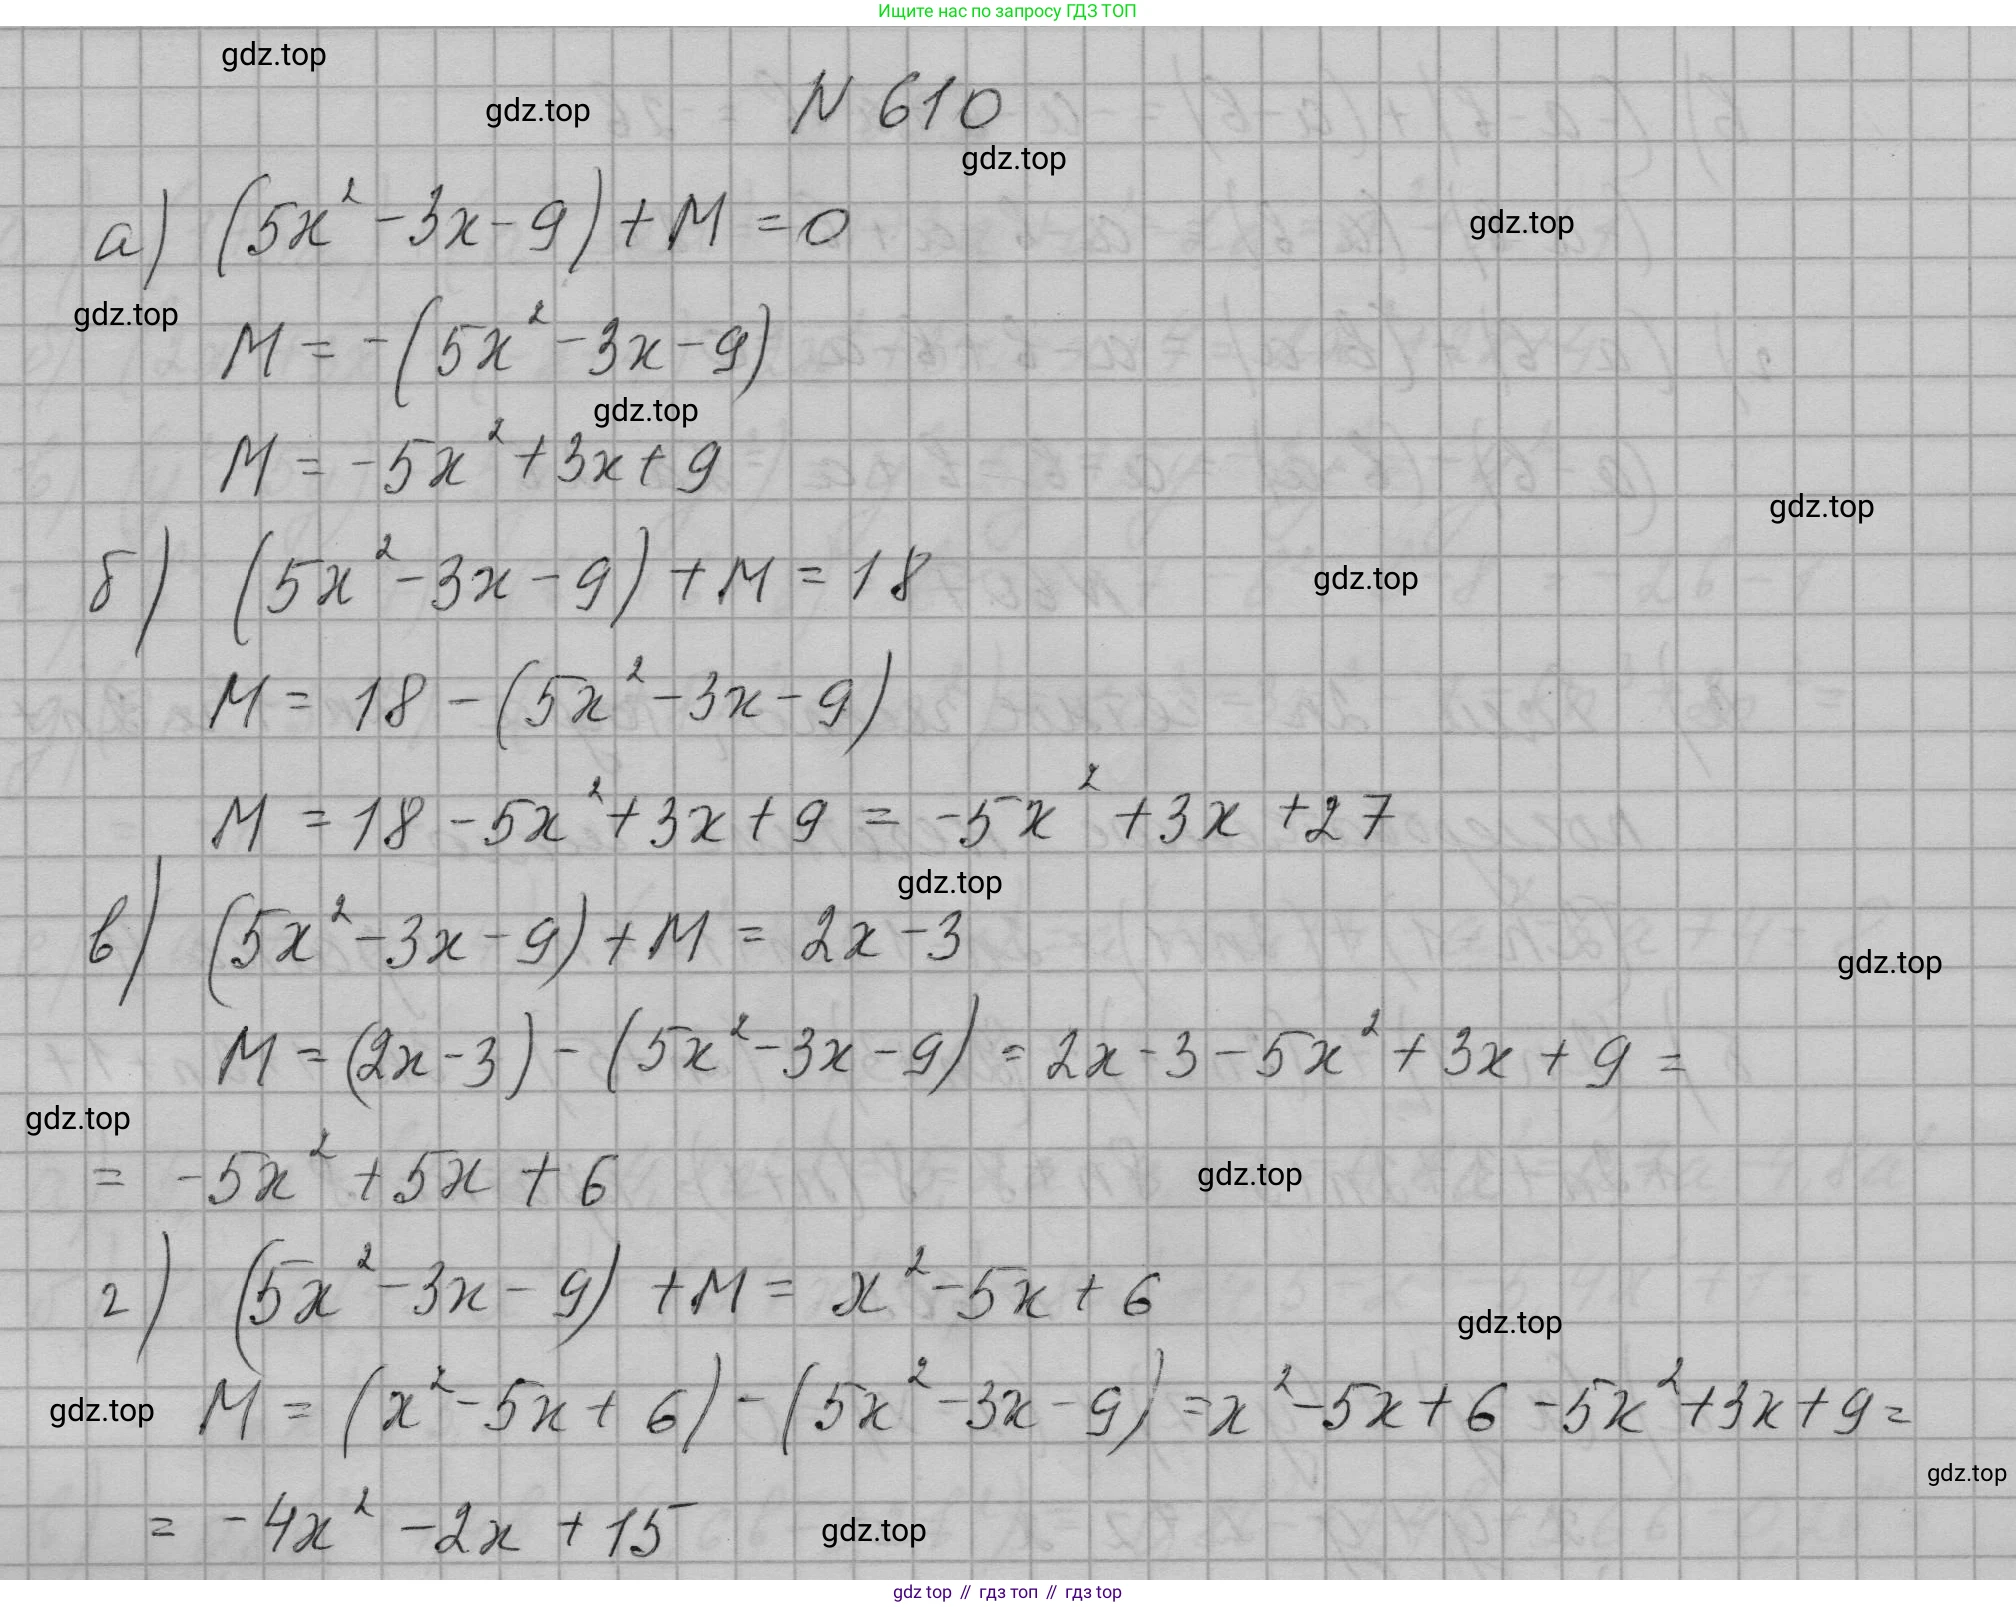 Ищите нас по запросу ГДЗ ТОП
gdz.top
gdz.top
N 610
gdz.top
а) (5x² - 3x - 9) + M = 0
gdz.top
gdz.top
M = -(5x² - 3x - 9)
gdz.top
M = -5x² + 3x + 9
gdz.top
б) (5x² - 3x - 9) + M = 18
gdz.top
M = 18 - (5x² - 3x - 9)
M = 18 - 5x² + 3x + 9 = -5x² + 3x + 27
gdz.top
в) (5x² - 3x - 9) + M = 2x - 3
gdz.top
M = (2x - 3) - (5x² - 3x - 9) = 2x - 3 - 5x² + 3x + 9 =
gdz.top
= -5x² + 5x + 6
gdz.top
г) (5x² - 3x - 9) + M = x² - 5x + 6
gdz.top
gdz.top
M = (x² - 5x + 6) - (5x² - 3x - 9) = x² - 5x + 6 - 5x² + 3x + 9 =
gdz.top
= -4x² - 2x + 15
gdz.top
gdz top // гдз топ // гдз top